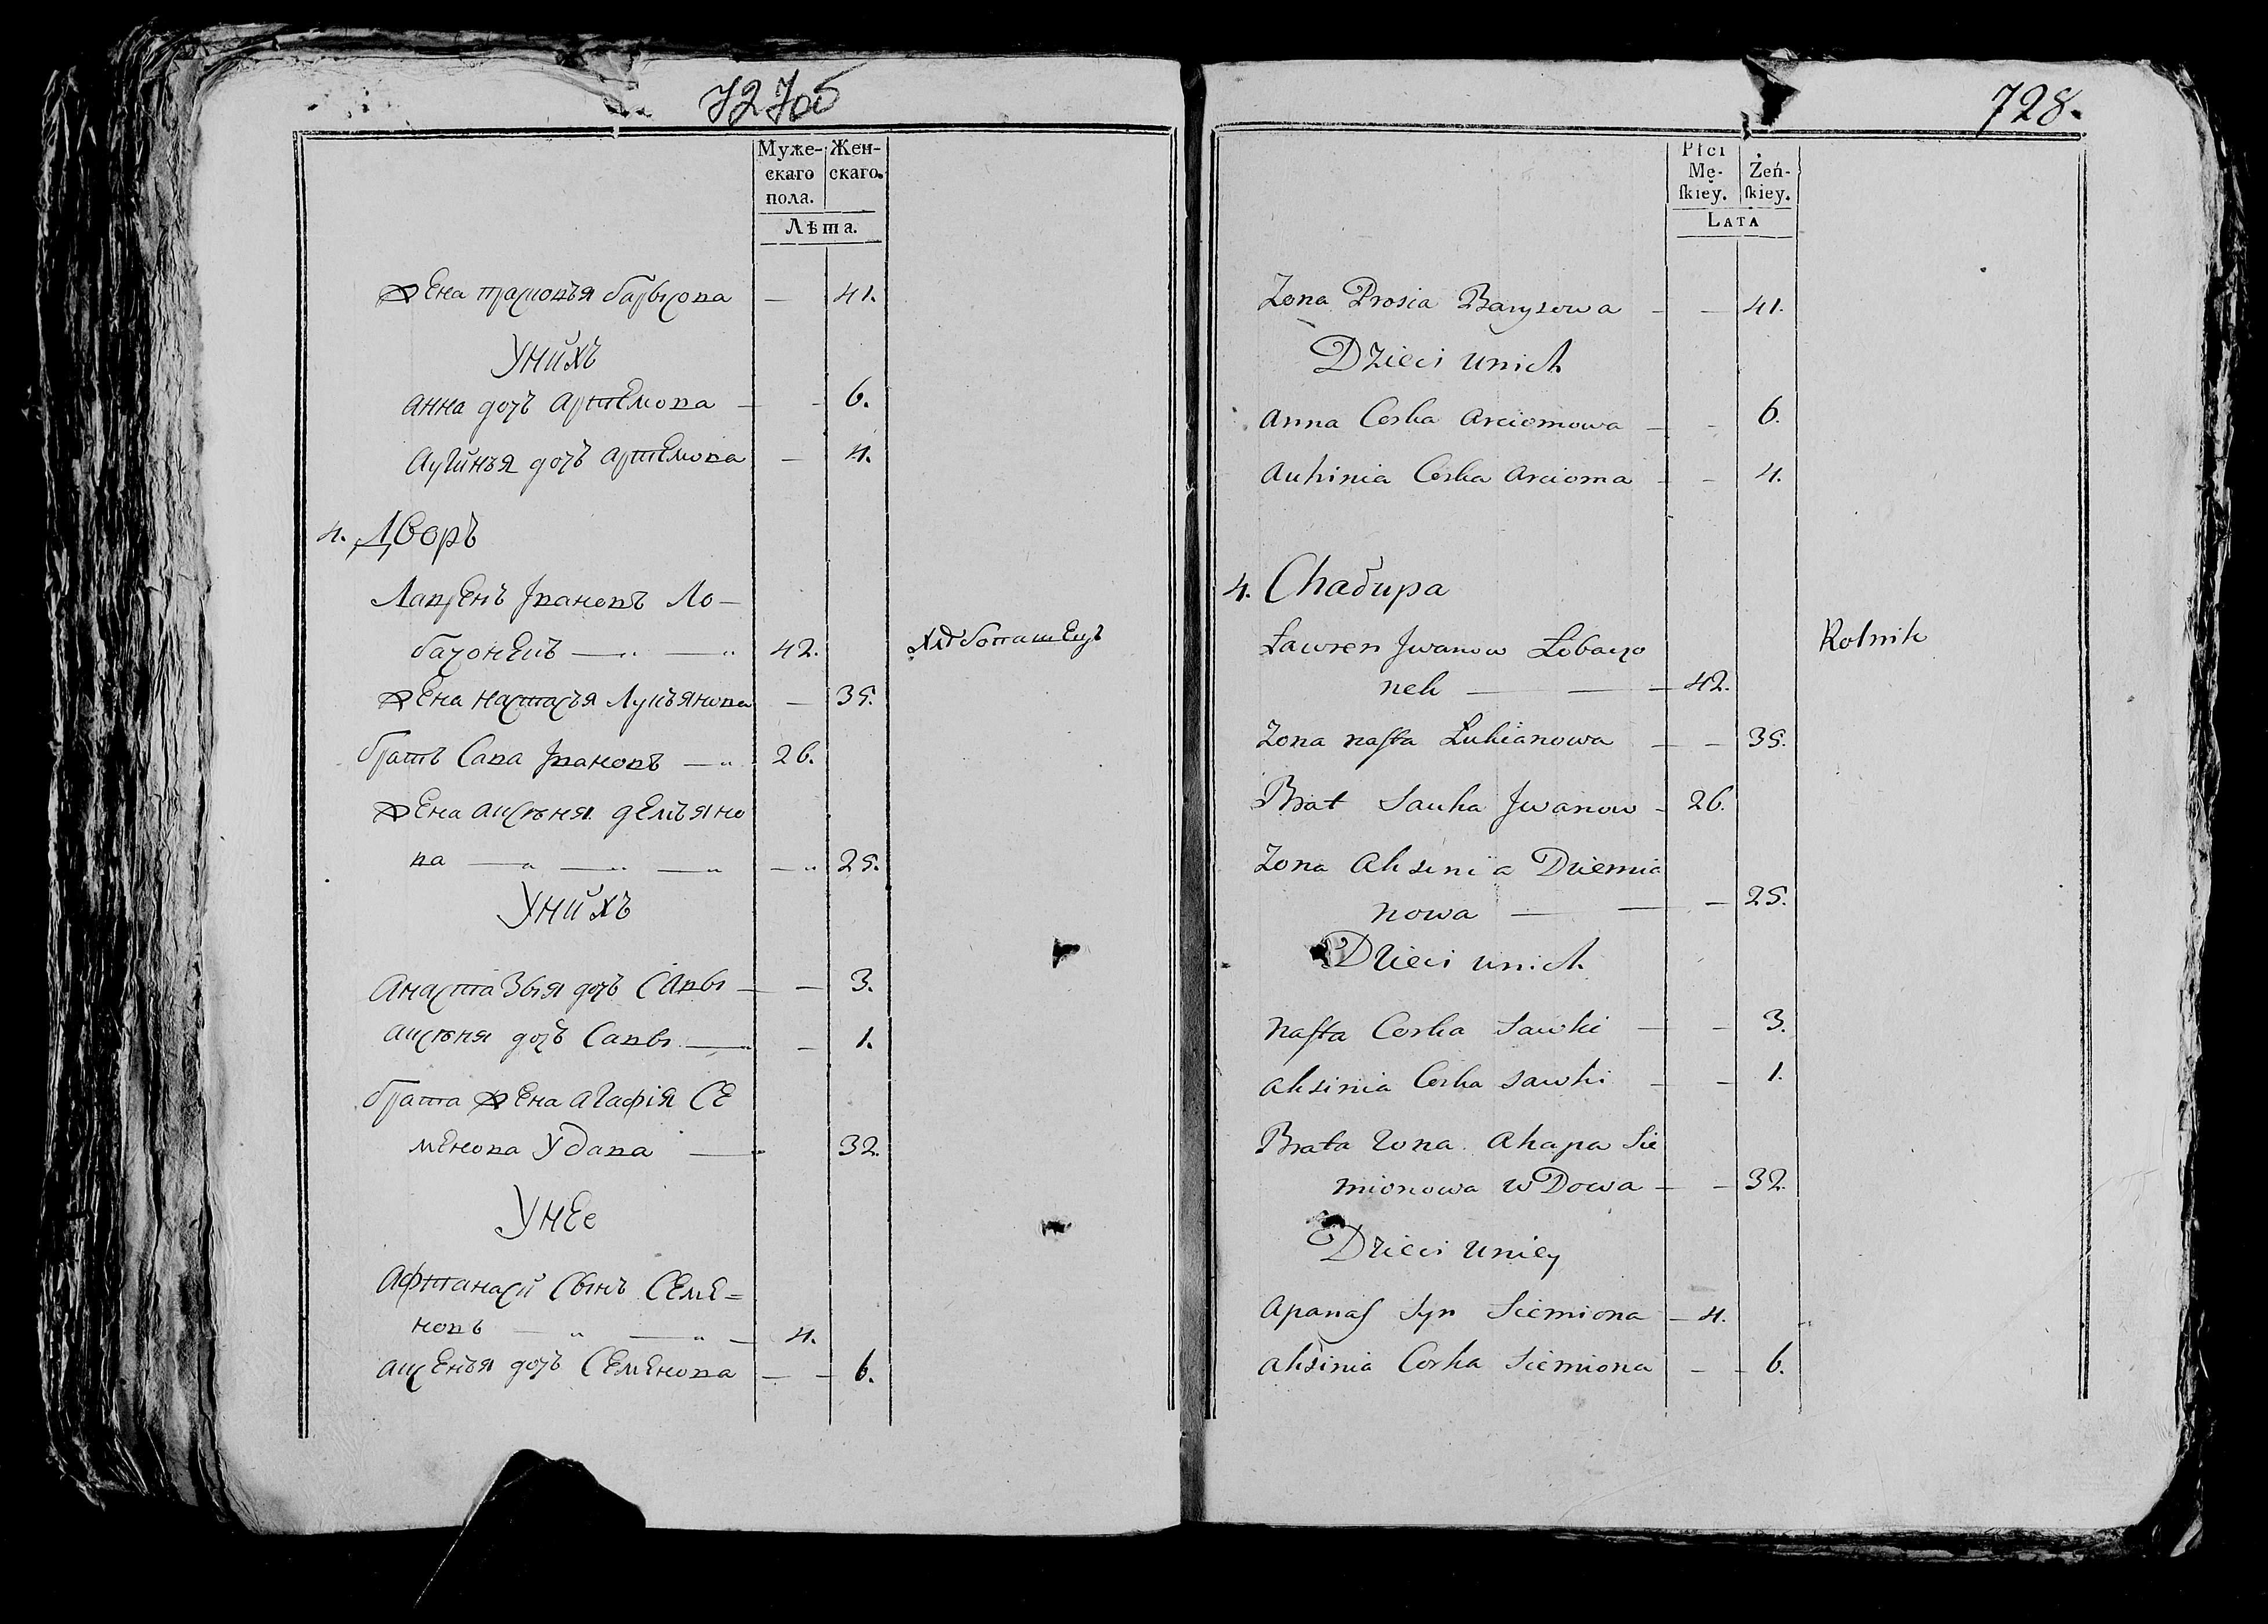 727об
Муже-
скаго
пола.
Жен-
скаго.
Лѣта.
Жена Прасковья Барысова — 41.
У нихъ
Анна дочъ Артемова — - 6.
Аугинья дочъ Артемова — 4.
4. Дворъ
Лавренъ Ивановъ Ло-
бачонекъ — — 42. Хлѣбопашецъ
Жена Настасья Лукъянова — 35.
братъ Сава Ивановъ — 26.
Жена Аксѣня Демъяно
ва — — — — 25.
У нихъ
Анастазыя дочъ Савы — — 3.
Аксѣня дочъ Савы — - 1.
брата Жена Агафія Се
менова Удава — 32.
У нее
Афтанасй Сынъ Семе=
новъ — — - 4.
Аксенья дочъ Семенова — - 6.
728.
Płci
Mę-
skiey.
Żeń-
skiey.
LATA
Zona Prosia Barysowa - — 41.
Dzieci unich
Anna Corka Arciomowa — - 6.
Auhinia Corka Arcioma - - 4.
4. Chałupa
Ławren Jwanow Łobaczo Rolnik
nek — — 42.
Zona Nasta Łukianowa — - 35.
Brat Sauka Jwanow - 26.
Zona Aksinia Dziemia
nowa — — - 25.
Dzieci unich
Nasta Corka Sawki — - 3.
Aksinia Corka Sawki - - 1.
Brata Zona Ahapa Sie
mionowa wDowa — - 32.
Dzieci uniey
Apanas Syn Siemiona - 4.
Aksinia Corka Siemiona - - 6.